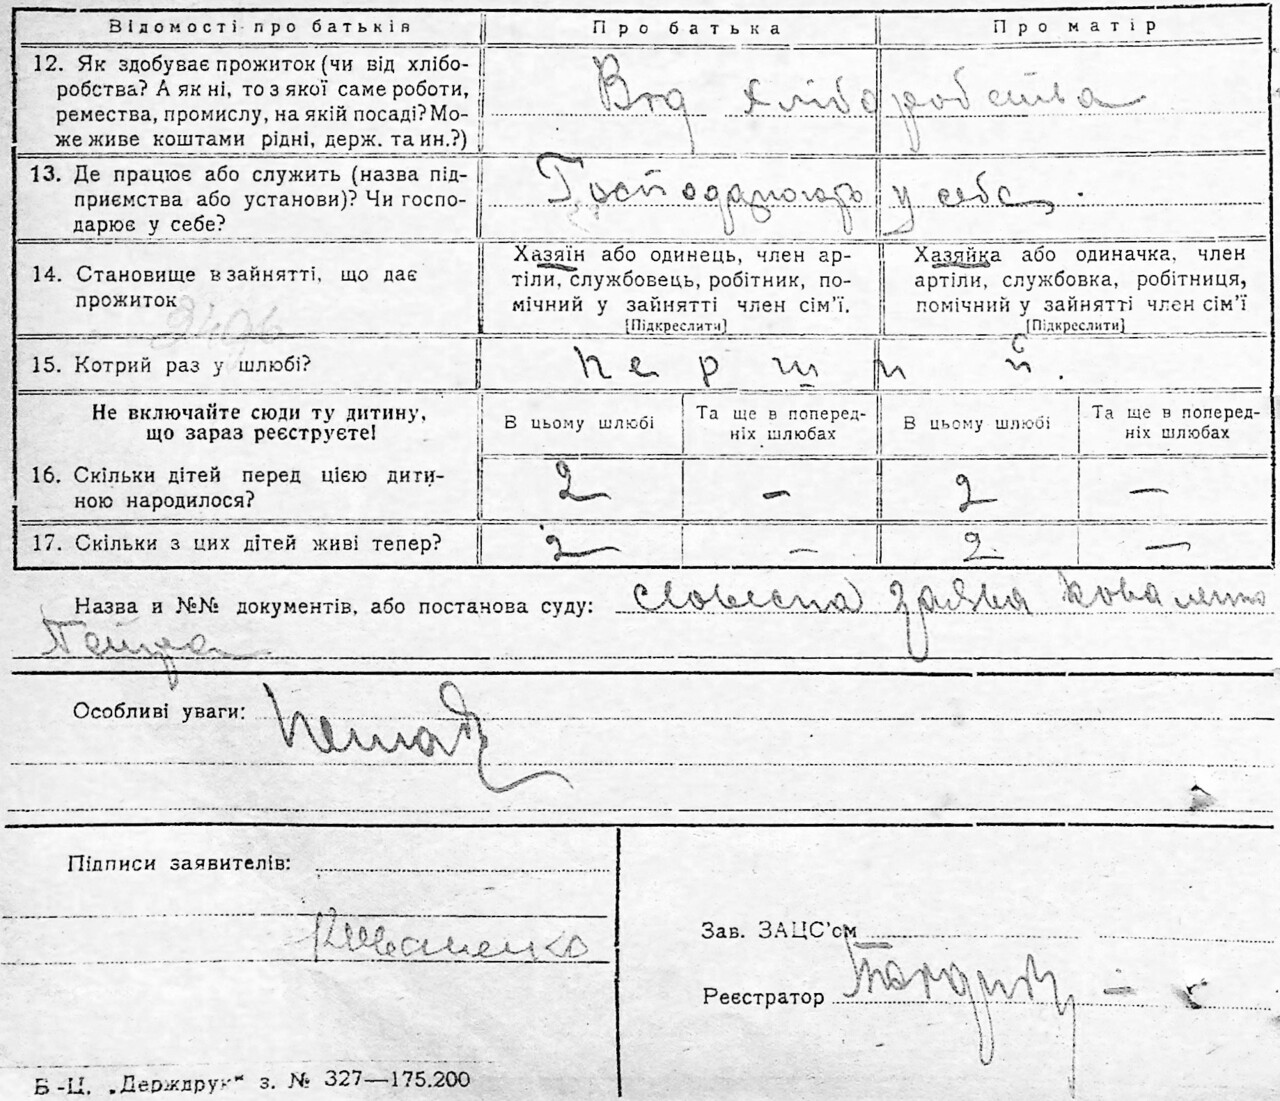 Відомості про батьків
Про батька
Про матір
12. Як здобуває прожиток (чи від хлібо-
робства? А як ні, то з якої саме роботи,
ремества, промислу, на якій посаді? Мо-
же живе коштами рідні, держ. та ин.?)
Від хліборобства
13. Де працює або служить (назва під-
приємства або установи)? Чи госпо-
дарює у себе?
Господарюють у себе.
14. Становище в зайнятті, що дає
прожиток
Хазяїн або одинець, член ар-
тіли, службовець, робітник, по-
мічний у зайнятті член сім'ї.
[Підкреслити]
Хазяйка або одиначка, член
артіли, службовка, робітниця,
помічний у зайнятті член сім'ї
[Підкреслити]
15. Котрий раз у шлюбі?
перший.
Не включайте сюди ту дитину,
що зараз реєструєте!
В цьому шлюбі
Та ще в поперед-
ніх шлюбах
В цьому шлюбі
Та ще в поперед-
ніх шлюбах
16. Скільки дітей перед цією дити-
ною народилося?
2 — 2 —
17. Скільки з цих дітей живі тепер?
2 — 2 —
Назва и №№ документів, або постанова суду: словесна заява Коваленко
Петра
Особливі уваги:
Підписи заявителів:
Зав. ЗАЦС'ом
Реєстратор
Б-Ц. „Держдрук" з. № 327—175.200